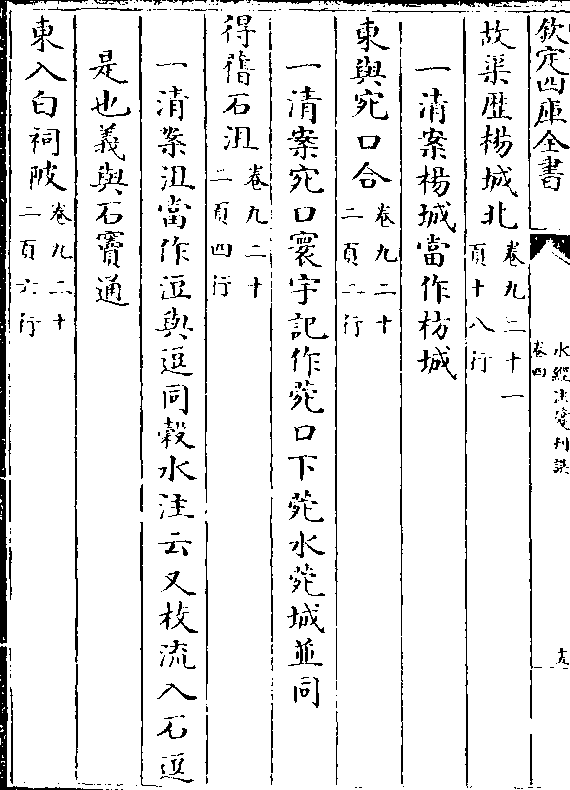 欽定四庫全書
水經注箋刊誤
卷四
十九
故渠歷楊城北卷九二十一頁十八行
一清案楊城當作枋城
東與宛口合卷九二十二頁二行
一清案宛口寰宇記作菀口下菀水菀城並同
得舊石沮卷九二十二頁四行
一清案沮當作洹與逗同穀水注云又枝流入石逗
是也義與石竇通
東入白祠陂卷九二十二頁六行